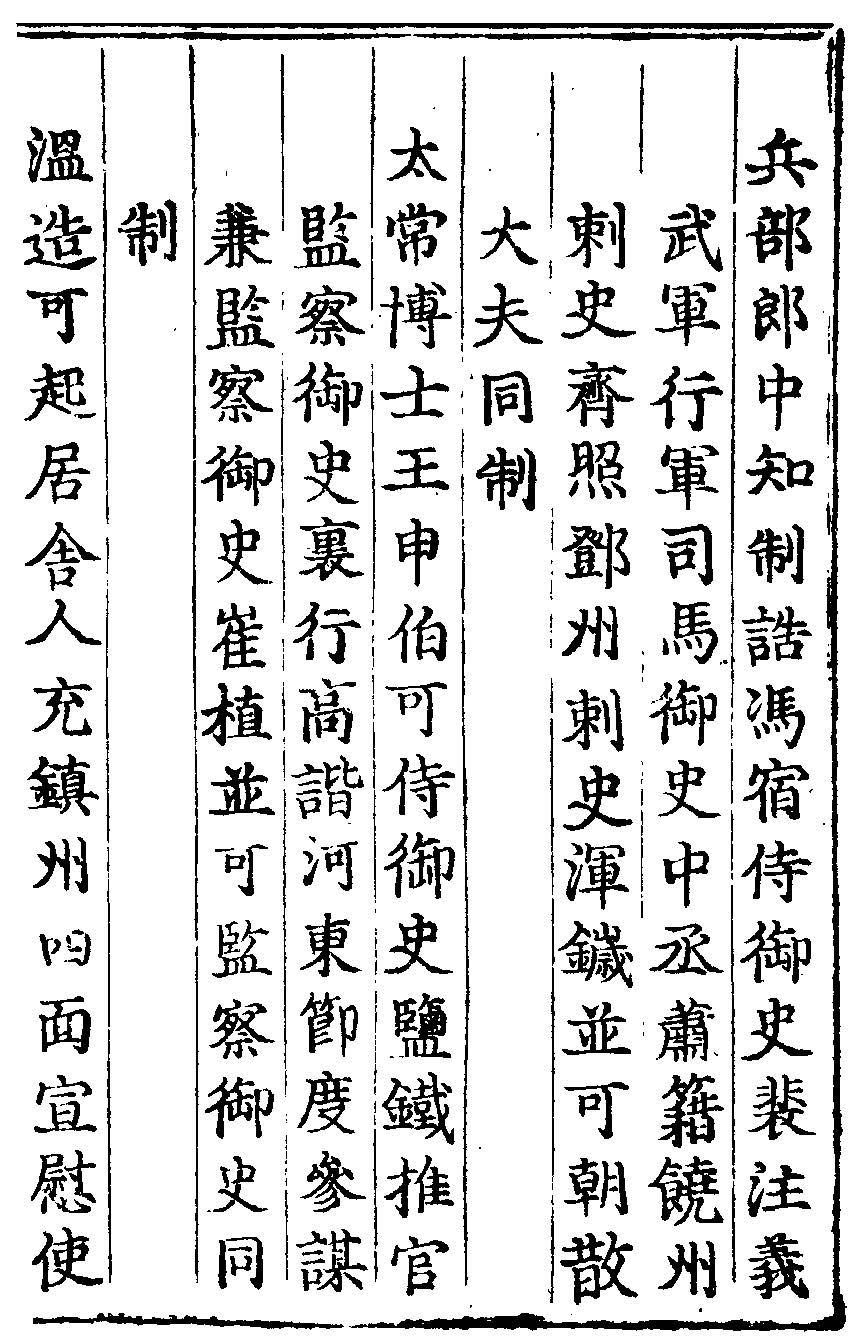 兵部郎中知制誥馮宿侍御史裴注義
武軍行軍司馬御史中丞蕭籍饒州
刺史齊照鄧州刺史渾鐬並可朝散
大夫同制
太常博士王申伯可侍御史鹽鐵推官
監察御史裏行高諧河東節度參謀
兼監察御史崔植並可監察御史同
制
溫造可起居舍人充鎮州四面宣慰使